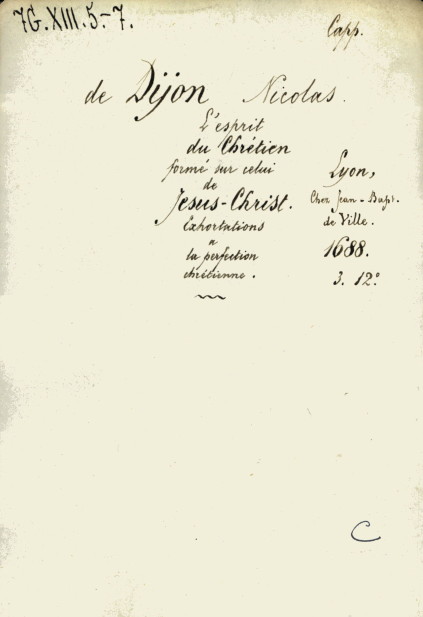 7G.XIII.5-7.
Capp.
de Dijon Nicolas.
L'esprit
du Chrétien
formé sur celui
de
Jesus-Christ.
Exhortations
a
la perfection
chrétienne.
Lyon,
Chez Jean-Bapt.
de Ville.
1688.
3. 12°
C